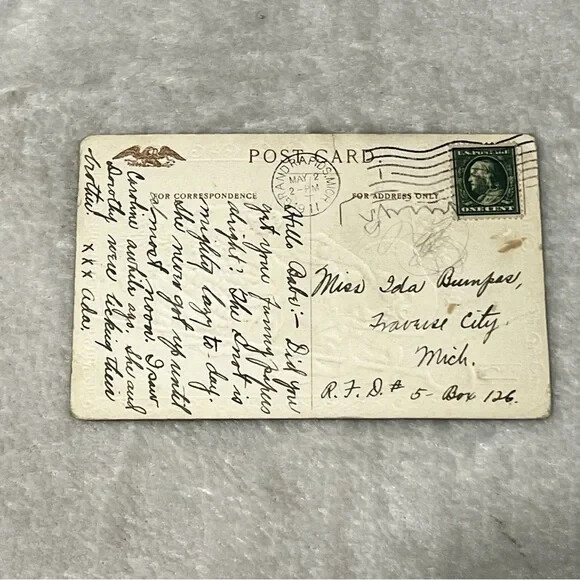 POST CARD.
FOR CORRESPONDENCE
FOR ADDRESS ONLY
GRAND RAPIDS, MICH.
MAY 2
2-PM
1911
U.S. POSTAGE
ONE CENT
Hello Babe:- Did you
get your funny papers
alright? The Snot is
mighty lazy to-day.
She never got up until
almost noon. I saw
Caroline awhile ago, She and
Dorothy were licking their
brother. x x x Ada.
Miss Ida Bumpas,
Traverse City
Mich.
R.F.D. # 5- Box 126.